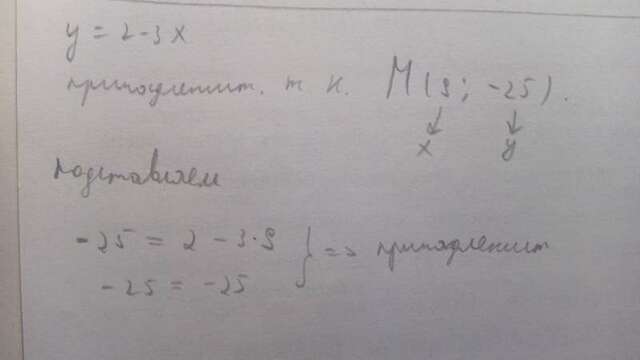 y = 2 - 3x
принадлежит. т. к. M(9; -25).
x y
подставляем
-25 = 2 - 3·9
-25 = -25 } => принадлежит